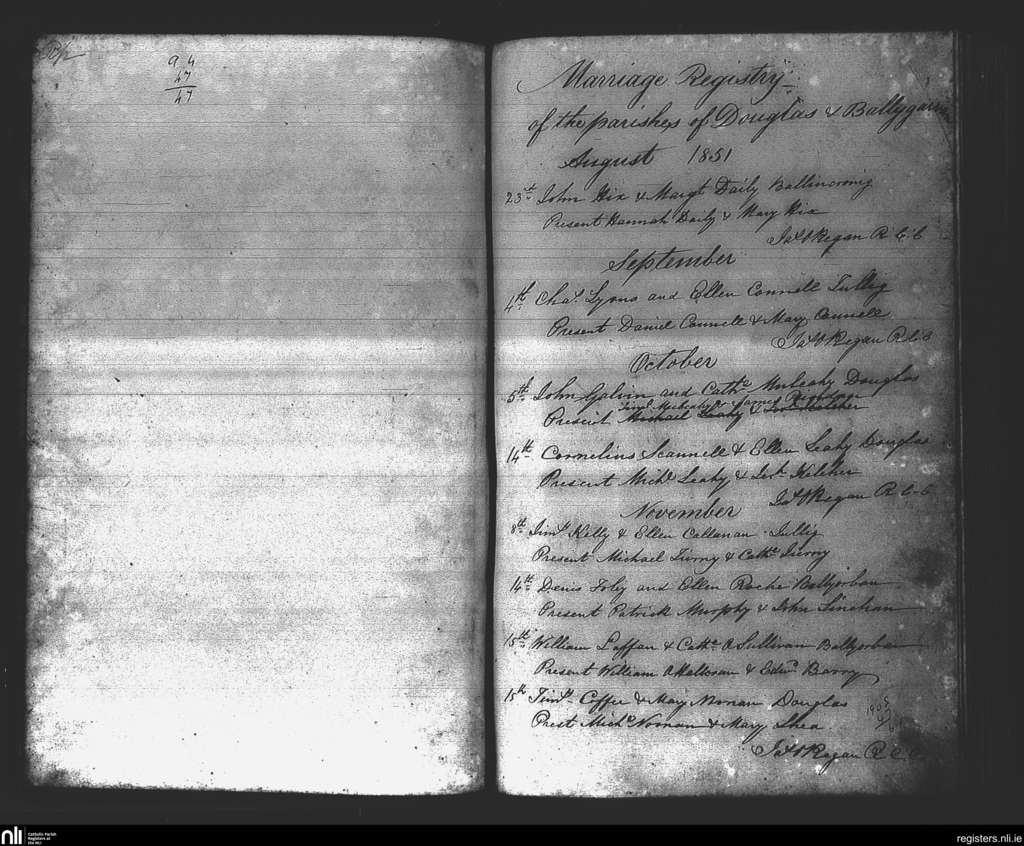 9 4
47
47
Marriage Registry
of the parishes of Douglas & Ballygarvan
August 1851
23rd John Hix & Margt Daily Ballincronig
Present Hannah Daily & Mary Hix
Jas O'Regan R.C.C
September
4th Chas. Lyons and Ellen Connell Tullig
Present Daniel Connell & Mary Connell
Jas O'Regan R.C.C
October
5th John Galvin and Cathe Mulcahy Douglas
Timt Mulcahy & James
Present Michael Leahy & Jerh Keleher
14th Cornelius Scannell & Ellen Leahy Douglas
Present Michl Leahy & Jerh Keleher
Jas O'Regan R.C.C
November
8th Timt Kelly & Ellen Callanan Tullig
Present Michael & Cathe
14th Denis Foley and Ellen Roche Ballyorban
Present Patrick Murphy & John Linehan
15th William Laffan & Cathe O Sullivan Ballyorban
Present William & Edwd Barry
15th Timt Coffee & Mary Noonan Douglas
Prest Michl Noonan & Mary Shea
Jas O'Regan R.C.C
nli
Catholic Parish
Registers at
the NLI
registers.nli.ie